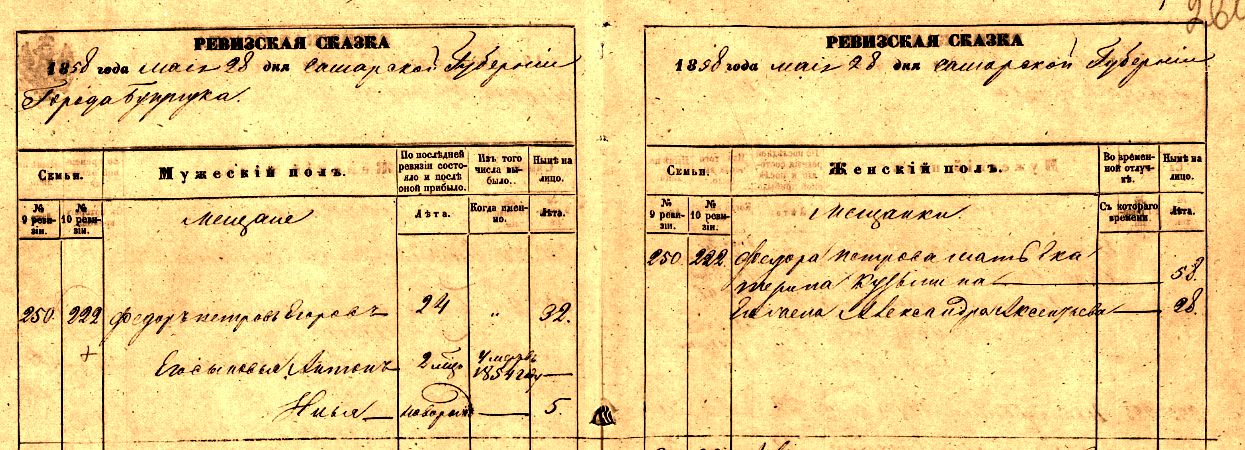 РЕВИЗСКАЯ СКАЗКА
1858 года мая 28 дня Самарской Губерніи
Города Бузулука.
Семьи.
Мужескій полъ.
По послѣдней ревизіи состояло и послѣ оной прибыло.
Изъ того числа выбыло..
Нынѣ на лицо.
№ 9 ревизіи.
№ 10 ревизіи.
Мещане
Лѣта.
Когда именно.
Лѣта.
250. 222 Федоръ Петровъ Егоровъ 24 „ 32.
Его сыновья Антонъ 2 мѣц умеръ 1851 году
Илья новорож 5.
260
РЕВИЗСКАЯ СКАЗКА
1858 года мая 28 дня Самарской Губерніи
Семьи.
Женскій полъ.
Во временной отлучкѣ.
Нынѣ на лицо.
№ 9 ревизіи.
№ 10 ревизіи.
Мещанки
Съ котораго времени
Лѣта.
250. 222. Федора Петрова мать Ека
терина Кузьмина 58.
Его жена Александра Аксентьева 28.